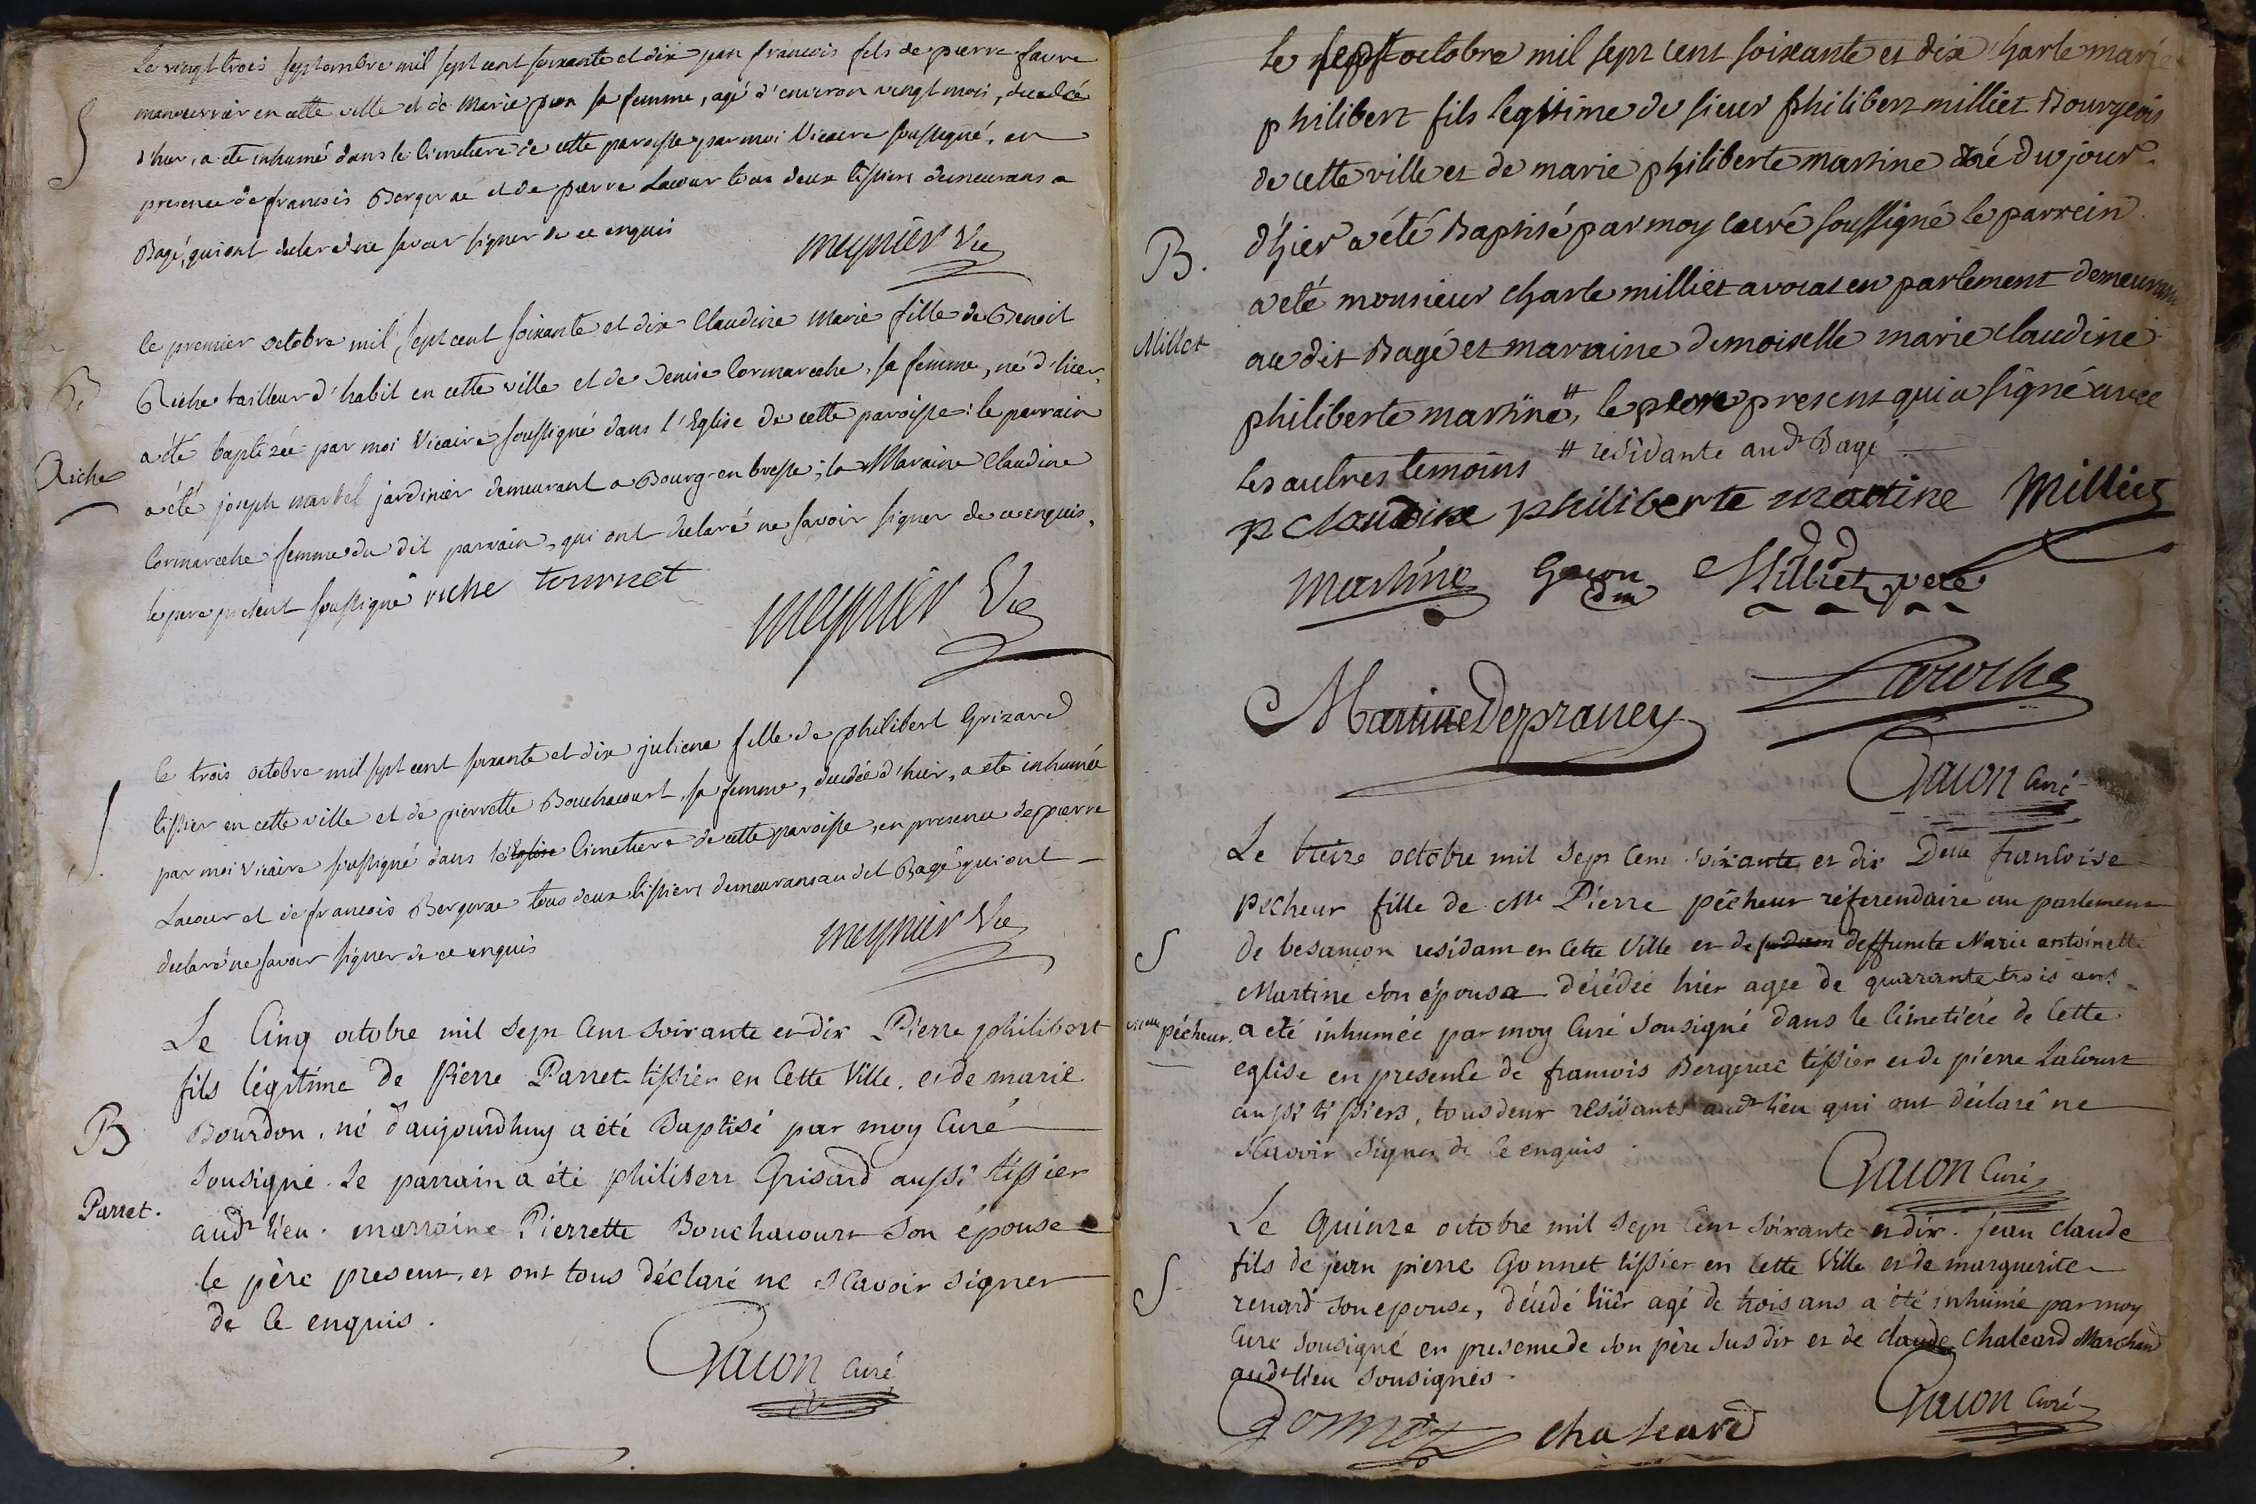 Le vingt trois septembre mil sept cent soixante et dix jean francois fils de pierre favre
manouvrier en cette ville et de Marie sa femme, agé d'environ vingt mois, decedé
d'hier, a été inhumé dans le cimetiere de cette paroisse par moi Vicaire soussigné, en
presence de francois Bergerac et de pierre Lacour tous deux tissiers demeurans a
Bagé, qui ont declaré ne savoir signer de ce enquis
meynier Vic
S
le premier octobre mil sept cent soixante et dix Claudine Marie fille de Benoit
Riche tailleur d'habit en cette ville et de Denise Cormareche, sa femme, né d'hier,
a été baptizée par moi Vicaire soussigné dans l'Eglise de cette paroisse: le parrain
a été joseph marbel jardinier demeurant a Bourg-en bresse; la Maraine Claudine
Cormareche femme du dit parrain, qui ont declaré ne savoir signer de ce enquis,
le pere present soussigné riche tournet
B
Riche
meynier Vic
le trois octobre mil sept cent soixante et dix juliene fille de philibert Grizard
tissier en cette ville et de pierrette Bouchacourt, sa femme, decedée d'hier, a eté inhumée
par moi vicaire soussigné dans le Eglise cimetiere de cette paroisse, en presence de pierre
Lacour et de francois Bergerac tous deux tissiers demeurans au dit Bagé qui ont
declaré ne savoir signer de ce enquis
S
meynier Vic
Le Cinq octobre mil sept Cent soixante et dix Pierre philibert
fils légitime de Pierre Parret tissier en Cette Ville. et de marie
Bourdon, né d'aujourdhuy a été Baptisé par moy Curé
sousigné. Le parrain a été philibert Grisard aussi tissier
audt lieu. marraine Pierrette Bouchacourt son épouse
le père present, et ont tous déclaré ne sçavoir signer
de Ce enquis.
B
Parret.
Gacon Curé
Le sept octobre mil sept cent soixante et dix charle marie
philibert fils legitime de sieur philibert milliet Bourgeois
de cette ville et de marie philiberte martine né du jour
d'hier a été Baptisé par moy curé soussigné le parrein
a eté monsieur charle milliet avocat en parlement demeurant
au dit Bagé et maraine demoiselle marie claudine
philiberte martine #, le pere present qui a signé avec
les autres temoins # residante audt Bagé
B.
Millet
p claudine philiberte martine Milliet
martine Gacon Milliet pere
Martine Depraney Laroche
Gacon Curé
Le treize octobre mil sept Cent soixante et dix Delle francoise
pécheur fille de Me Pierre pécheur réferendaire au parlement
de besançon residant en Cette Ville et de deffunte Marie antoinette
Martine son épouse décédée hier agée de quarante trois ans
a été inhumée par moy Curé sousigné dans le Cimetiére de Cette
eglise en presence de francois Bergerac tissier et de pierre Lacourt
aussi tissiers, tous deux résidants audt lieu qui ont déclaré ne
sçavoir signer de Ce enquis.
S
pécheur.
Gacon Curé
Le Quinze octobre mil sept Cent soixante et dix. jean claude
fils de jean pierre Gonnet tissier en Cette Ville et de marguerite
renard son epouse, décédé hier agé de trois ans a été inhumé par moy
Curé sousigné en presence de son père susdit et de claude Chaleard Marchand
audt lieu sousignés.
S
Gonnet chaleard Gacon Curé